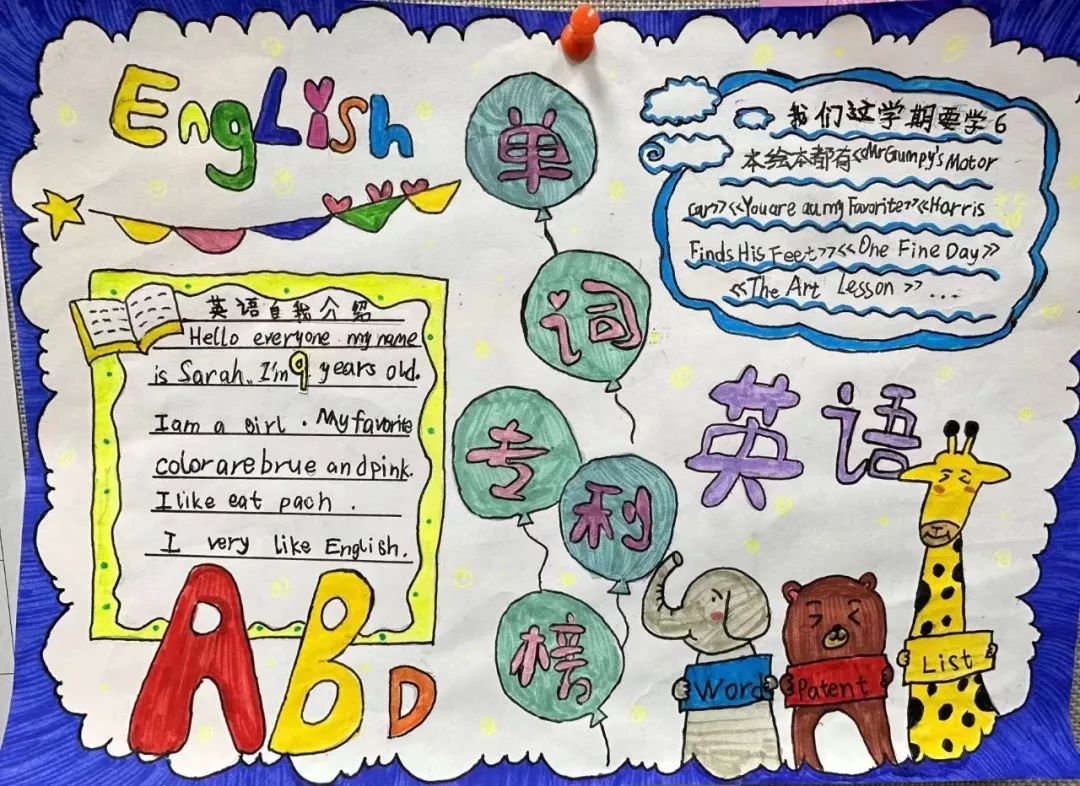 EngLish
单
词
专
利
榜
我们这学期要学6
本绘本都有《MrGumpy's Motor
car》《You are all my Favorite》《Harris
Finds His Feet》《One Fine Day》
《The Art Lesson》...
英语自我介绍
Hello everyone my name
is Sarah. I'm 9 years old.
I am a girl. My favorite
color are brue and pink.
I like eat pach.
I very like English.
英语
A B D
Word
Patent
List